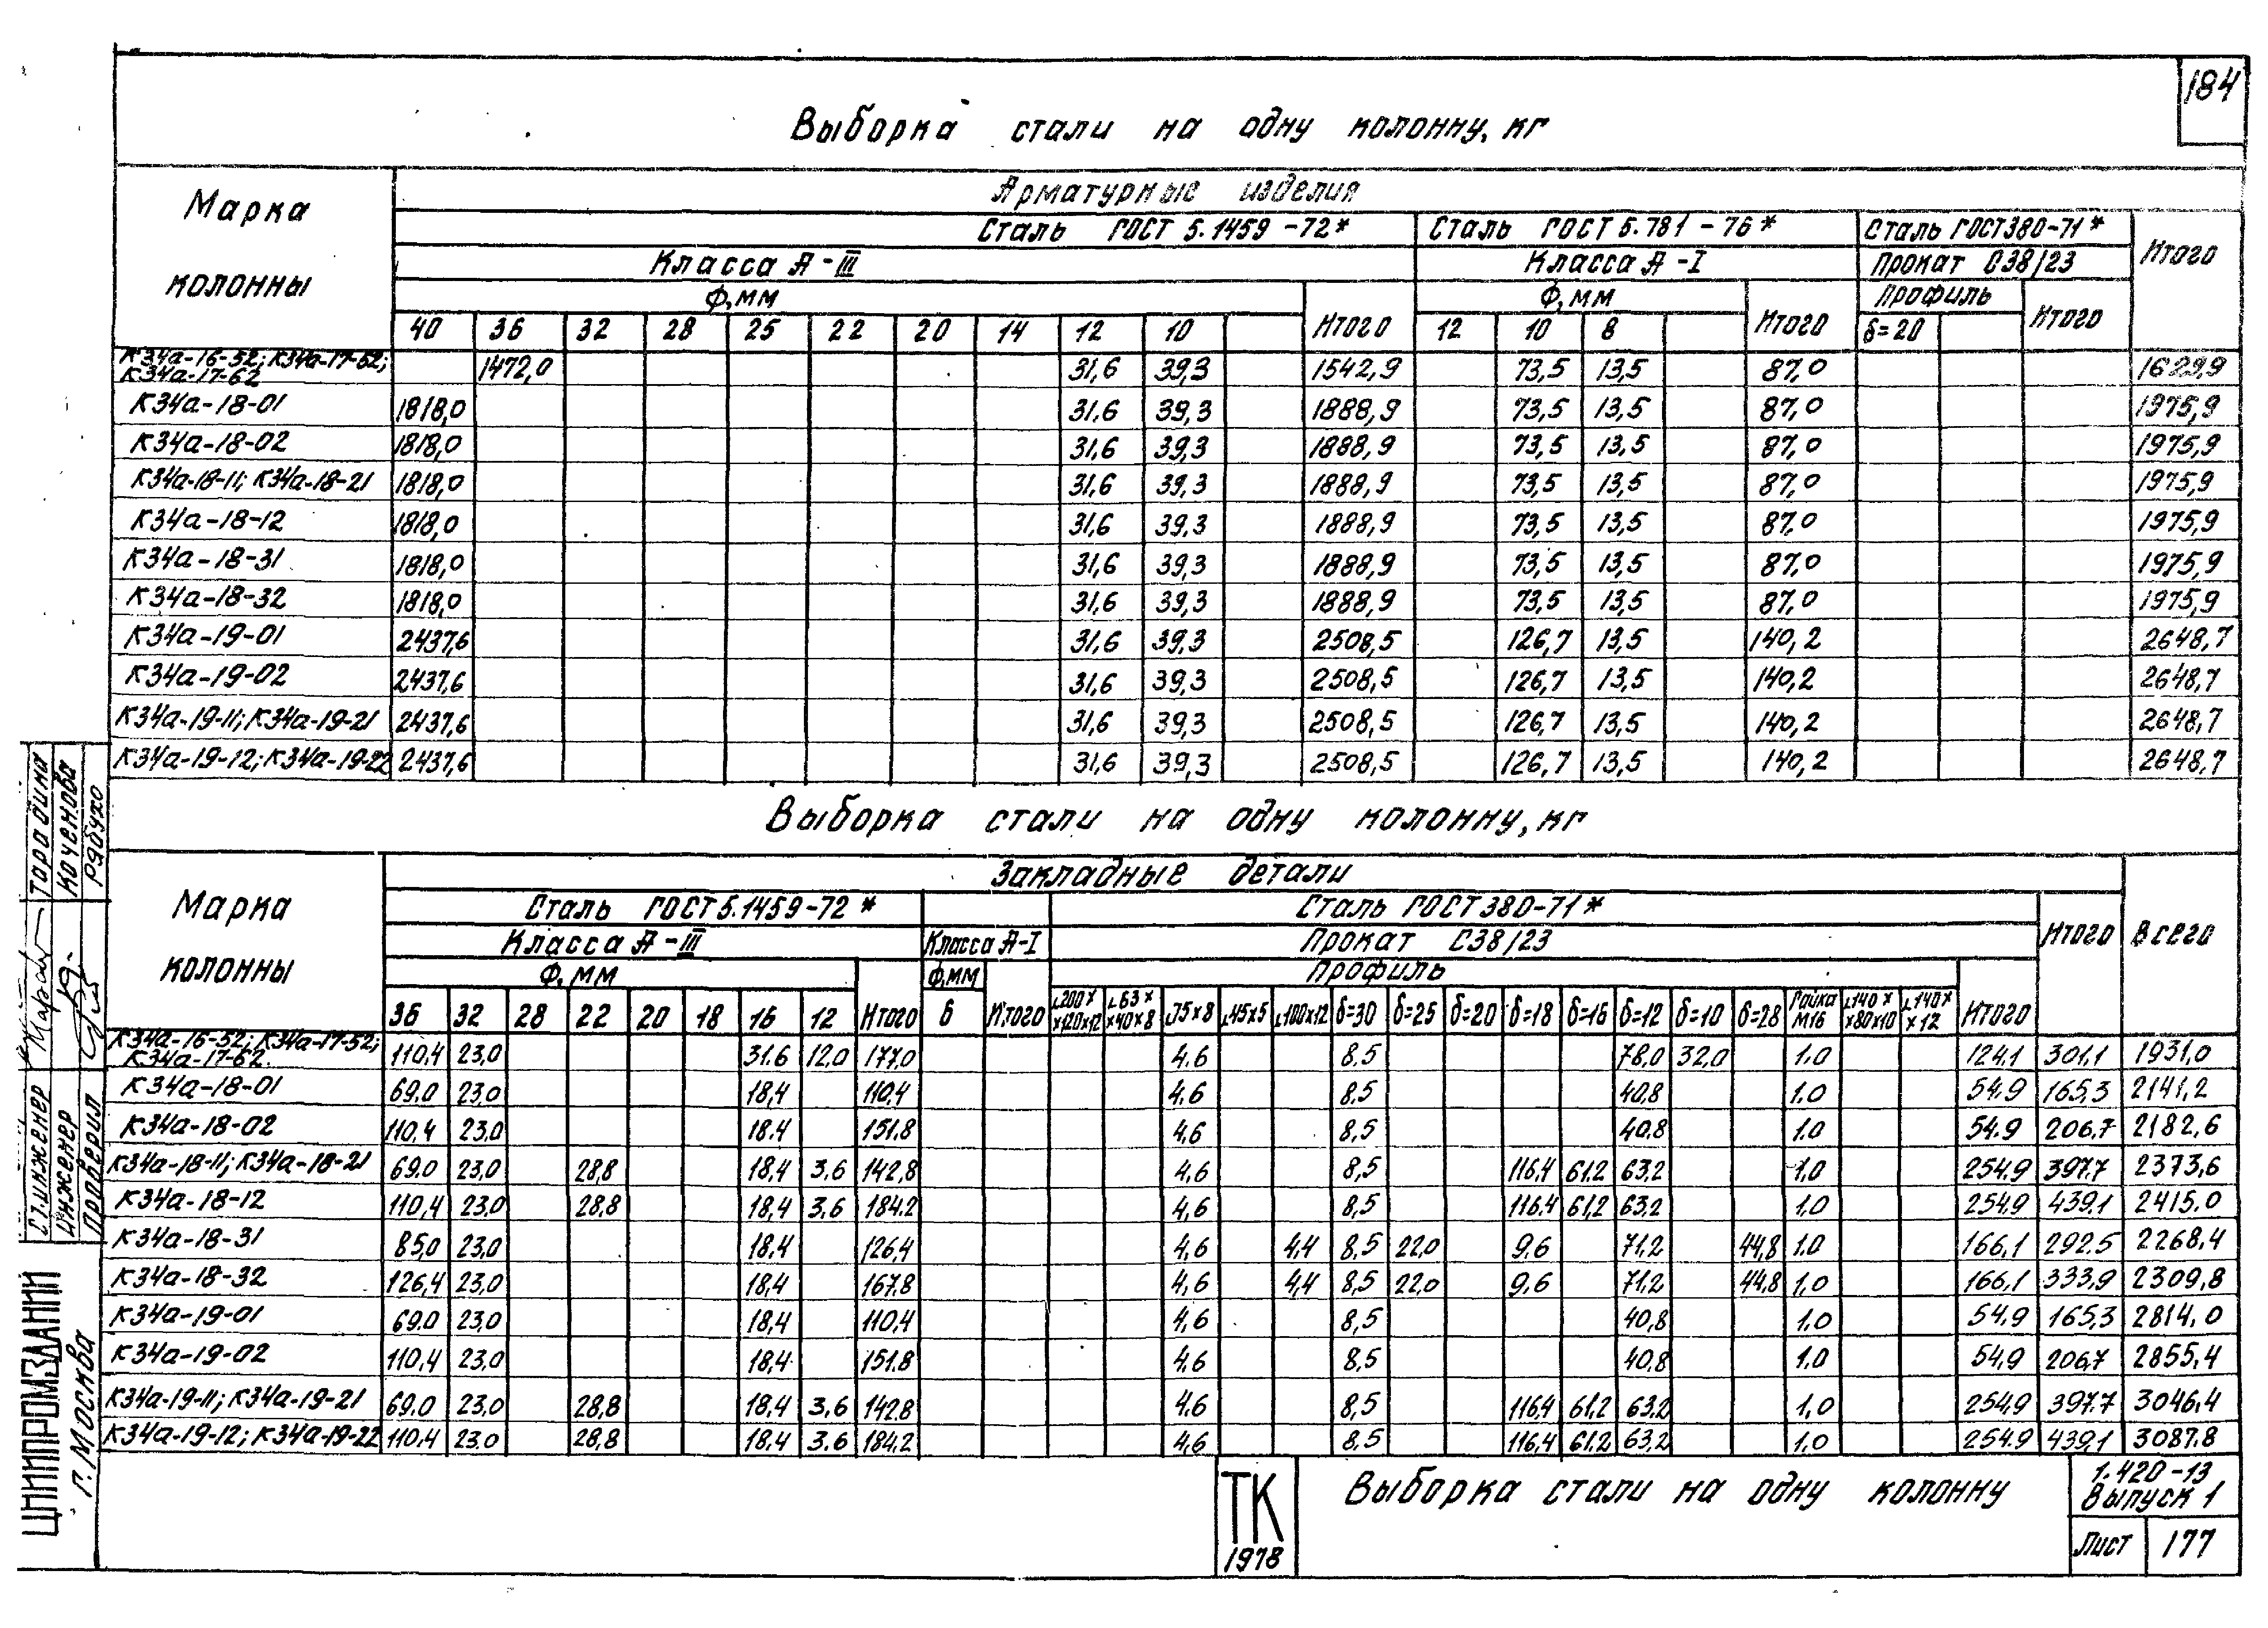 184
Выборка стали на одну колонну, кг
Марка колонны
Арматурные изделия
Сталь ГОСТ 5.1459-72* Сталь ГОСТ 5.781-76* Сталь ГОСТ380-71* Итого
Класса А-III Класса А-I Прокат С38/23
Ф, мм Итого Ф, мм Итого Профиль Итого
40 36 32 28 25 22 20 14 12 10 12 10 8 δ=20
К34а-16-52; К34а-17-52; К34а-17-62 1472,0 31,6 39,3 1542,9 73,5 13,5 87,0 1629,9
К34а-18-01 1818,0 31,6 39,3 1888,9 73,5 13,5 87,0 1975,9
К34а-18-02 1818,0 31,6 39,3 1888,9 73,5 13,5 87,0 1975,9
К34а-18-11; К34а-18-21 1818,0 31,6 39,3 1888,9 73,5 13,5 87,0 1975,9
К34а-18-12 1818,0 31,6 39,3 1888,9 73,5 13,5 87,0 1975,9
К34а-18-31 1818,0 31,6 39,3 1888,9 73,5 13,5 87,0 1975,9
К34а-18-32 1818,0 31,6 39,3 1888,9 73,5 13,5 87,0 1975,9
К34а-19-01 2437,6 31,6 39,3 2508,5 126,7 13,5 140,2 2648,7
К34а-19-02 2437,6 31,6 39,3 2508,5 126,7 13,5 140,2 2648,7
К34а-19-11; К34а-19-21 2437,6 31,6 39,3 2508,5 126,7 13,5 140,2 2648,7
К34а-19-12; К34а-19-22 2437,6 31,6 39,3 2508,5 126,7 13,5 140,2 2648,7
Выборка стали на одну колонну, кг
Марка колонны
Закладные детали Всего
Сталь ГОСТ 5.1459-72* Сталь ГОСТ 380-71* Итого
Класса А-III Класса А-I Прокат С38/23
Ф, мм Итого Ф, мм Итого Профиль Итого
36 32 28 22 20 18 16 12 6 ∟200х х120х12 ∟63х х40х8 ∟75х8 ∟45х5 ∟100х12 δ=30 δ=25 δ=20 δ=18 δ=16 δ=12 δ=10 δ=28 Гайка М16 ∟140х х80х10 ∟140х х12
К34а-16-52; К34а-17-52; К34а-17-62 110,4 23,0 31.6 12,0 177,0 4,6 8.5 78,0 32,0 1.0 124,1 301,1 1931,0
К34а-18-01 69,0 23,0 18,4 110,4 4,6 8,5 40,8 1.0 54,9 165,3 2141,2
К34а-18-02 110,4 23,0 18.4 151.8 4,6 8,5 40,8 1.0 54.9 206,7 2182,6
К34а-18-11; К34а-18-21 69.0 23,0 28,8 18,4 3,6 142,8 4,6 8,5 116,4 61,2 63,2 1,0 254,9 397,7 2373,6
К34а-18-12 110,4 23,0 28,8 18,4 3,6 184,2 4,6 8,5 116,4 61,2 63,2 1,0 254,9 439,1 2415,0
К34а-18-31 85,0 23,0 18,4 126,4 4,6 4,4 8,5 22,0 9,6 71,2 44,8 1.0 166,1 292,5 2268,4
К34а-18-32 126,4 23,0 18,4 167,8 4,6 4,4 8,5 22,0 9,6 71,2 44,8 1,0 166,1 333,9 2309,8
К34а-19-01 69.0 23,0 18,4 110,4 4,6 8,5 40,8 1.0 54,9 165,3 2814,0
К34а-19-02 110,4 23,0 18,4 151.8 4,6 8,5 40,8 1.0 54,9 206,7 2855,4
К34а-19-11; К34а-19-21 69.0 23,0 28,8 18,4 3,6 142.8 4.6 8,5 116,4 61,2 63,2 1,0 254,9 397,7 3046,4
К34а-19-12; К34а-19-22 110,4 23.0 28,8 18,4 3,6 184,2 4,6 8,5 116,4 61,2 63,2 1,0 254,9 439,1 3087.8
ТК
1978
Выборка стали на одну колонну
1.420-13
Выпуск 1
Лист 177
Ст.инженер
Инженер Коченова
Проверил Рябухо
ЦНИИПРОМЗДАНИЙ
г. Москва